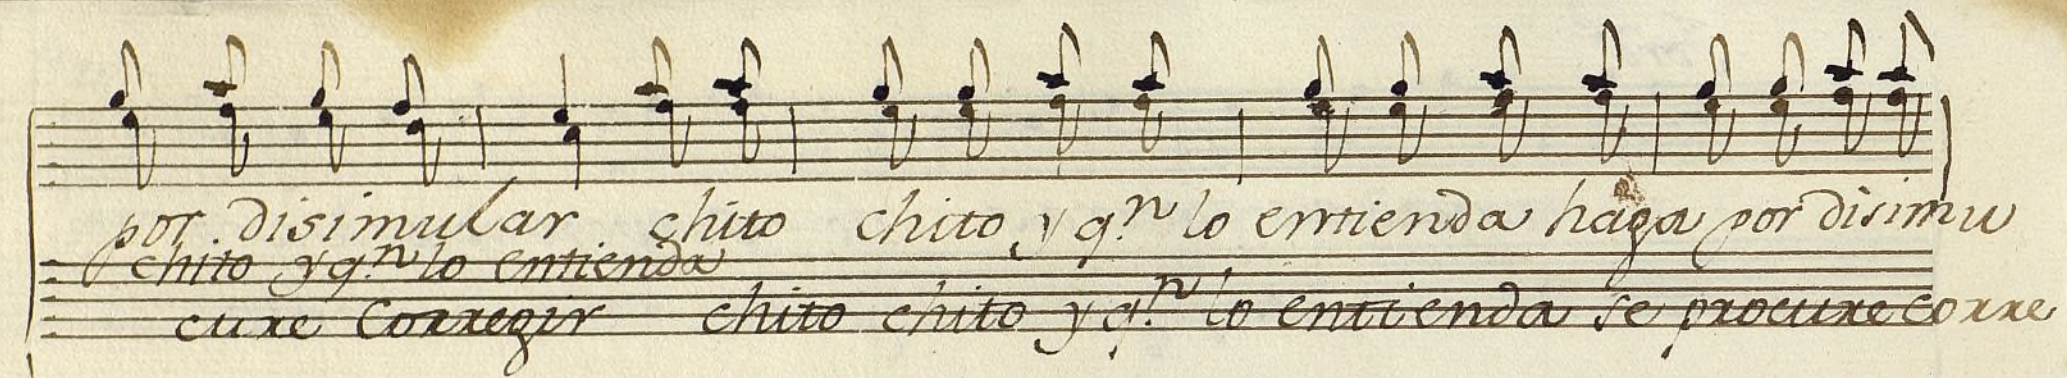 por disimular chito chito y q.n lo entienda haga por disimu
chito y q.n lo entienda
cure Corregir chito chito y q.n lo entienda se procure corre